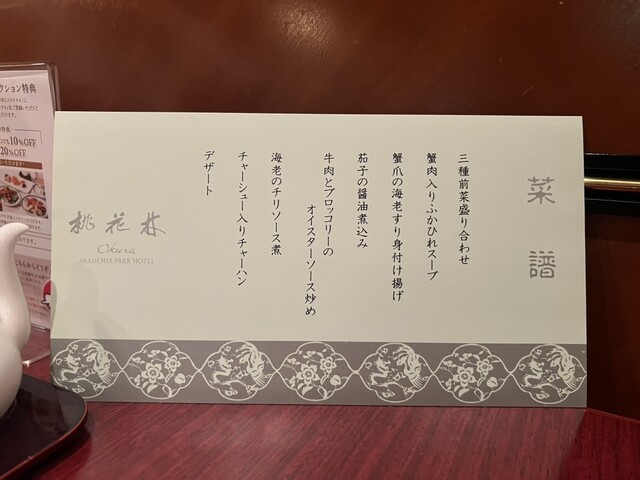 菜譜
三種前菜盛り合わせ
蟹肉入りふかひれスープ
蟹爪の海老すり身付け揚げ
茄子の醤油煮込み
牛肉とブロッコリーの
オイスターソース炒め
海老のチリソース煮
チャーシュー入りチャーハン
デザート
桃花林
Okura
AKADEMIA PARK HOTEL
クション特典
10%OFF
20%OFF